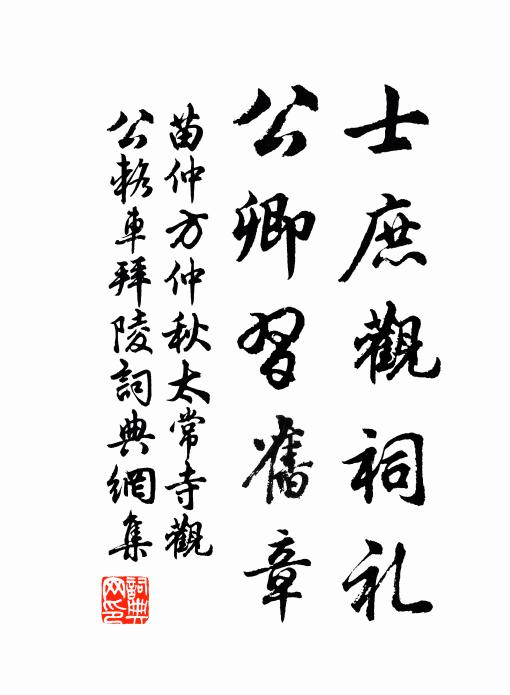 士庶觀祠礼
公卿習舊章
苗仲方仲秋太常寺觀
公輅車拜陵詞典網集
詞典網印